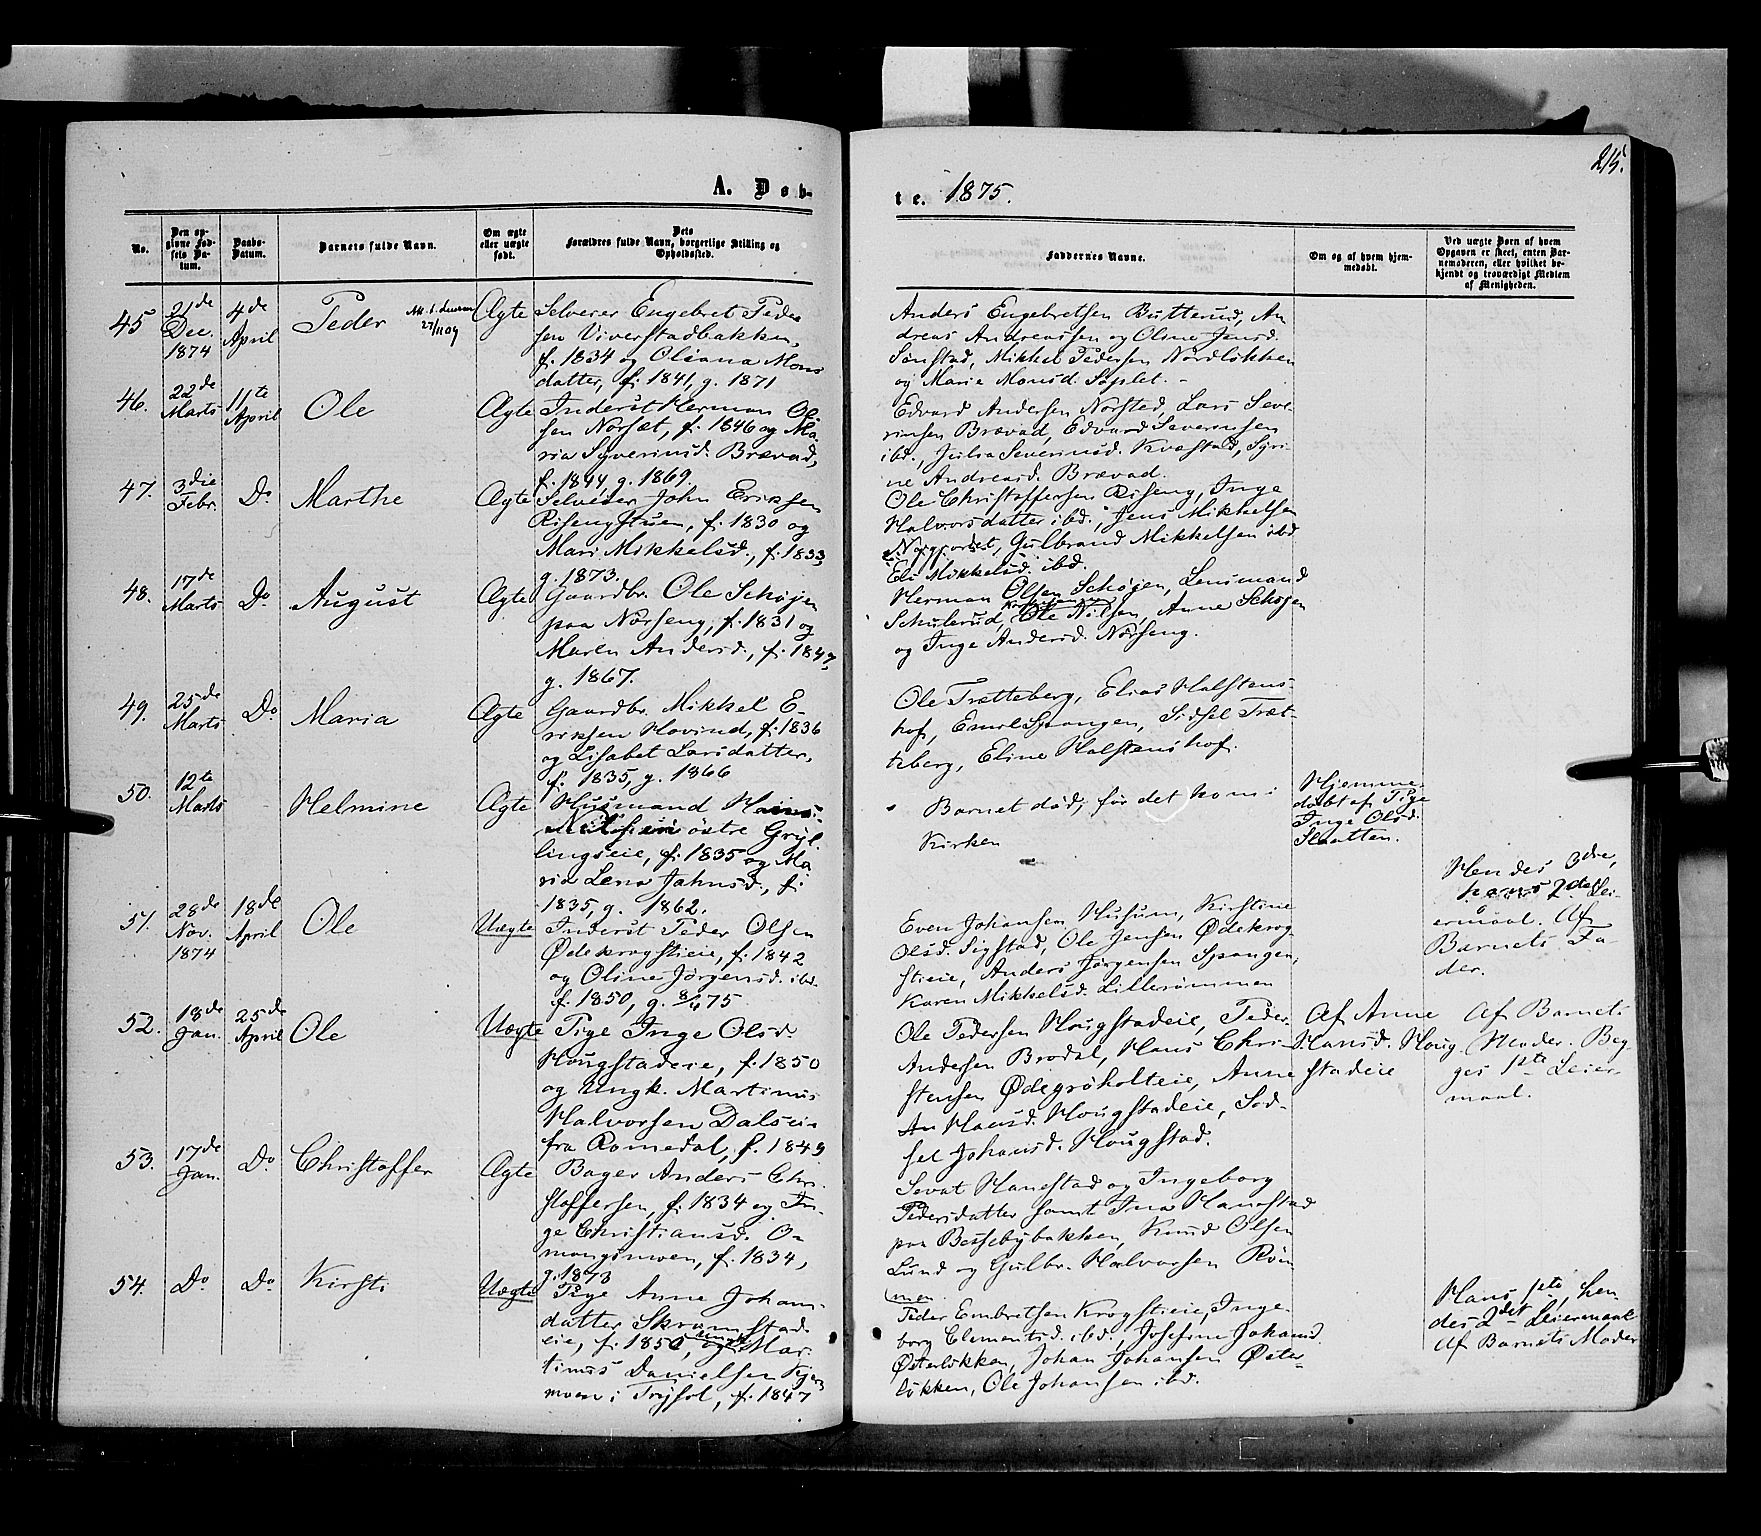 A. Døb-
te. 1875.
215.
No.
Den op-
givne Fød-
sels Da-
tum.
Daabs-
Datum.
Barnets fulde Navn.
Om ægte
eller uægte
født.
Dets
Forældres fulde Navn, borgerlige Stilling og
Opholdssted.
Faddernes Navne.
Om og af hvem hjem-
medøbt.
Ved uægte Børn af hvem
Opgaven er skeet, enten Bar-
nemoderen, eller hvilket be-
kjendt og troværdigt Medlem
af Menigheden.
45
21de
Dec.
1874
4de
April
Peder
27/11 09
Ægte
Selveier Engebret Peder
sen Viverstadbakken,
f. 1834 og Oliana Mons
datter, f. 1841, g. 1871
Anders Engebretsen Butterud, An
dreas Andreassen og Oline Jensd.
Sønstad, Mikkel Pedersen Nordløkken
og Marie Monsd. Saplet. -
46.
22de
Marts
11te
April
Ole
Ægte
Inderst Herman Ol-
sen Norsæt, f. 1846 og Ma-
ria Syverinsd. Brævad,
f. 1844, g. 1869.
Edvard Andersen Norsted, Lars Seve-
rinsen Brævad, Edvard Severinsen
ibd., Julia Severinsd. Kvastad, Syri-
ne Andreasd. Brævad.
47.
3die
Febr.
Do
Marthe
Ægte
Selveier John Eriksen
Risengstuen, f. 1830 og
Mari Mikkelsd., f. 1833,
g. 1873.
Ole Christoffersen Riseng, Inge
Halvorsdatter ibd., Jens Mikkelsen
Gulbrand Mikkelsen ibd
Eli Mikkelsd. ibd.
48.
17de
Marts
Do
August
Ægte
Gaardbr. Ole Schøjen
paa Nørseng, f. 1831 og
Maren Andersd., f. 1847,
g. 1867.
Herman Olsen Schøjen, Lensmand
Schulerud, Ole Nilsen, Anne Schøjen
og Inge Andersd. Nørseng.
49.
25de
Marts
Do
Maria
Ægte
Gaardbr. Mikkel E-
riksen Hovind, f. 1836
og Lisabet Larsdatter,
f. 1835, g. 1866
Ole Trætteberg, Elias Halstens-
hof, Emil Spangen, Sidsel Træt-
teberg, Eline Halstenshof.
50.
12te
Marts
Helmine
Ægte
Husmand Hans
Nilsen østre Gryl-
lingseie, f. 1835 og Ma
ria Lena Jahnsd., f.
1835, g. 1862.
Barnet død, før det kom i
Kirken
Hjemme
døbt af Pige
Inge Olsd.
Slaatten.
51.
28de
Nov.
1874
18de
April
Ole
Uægte
Inderst Peder Olsen
Ødekrogstieie, f. 1842
og Oline Jørgensd. ibd.
f. 1850, g. 8/4 75
Even Johansen Husum, Kirstine
Olsd. Sigstad, Ole Jensen Ødekrog-
stieie, Anders Jørgensen Spangen,
Karen Mikkelsd. Lillerømmen
Hendes 3die,
hans 2det Lei-
ermaal. Af
Barnets Fa-
der.
52.
18de
Jan.
25de
April
Ole
Uægte
Pige Inge Olsd.
Hougstadeie, f. 1850
og Ungk. Martinus
Halvorsen Dalseie
fra Romedal, f. 1849
Ole Pedersen Hougstadeie, Peder
Andersen Brodal, Hans Chri-
stensen Ødegrøholteie, Anne
An Hansd. Hougstadeie, Sid-
sel Johansd. Hougstad.
Af Anne
Hansd. Houg
stadeie
Af Barnets
Moder. Beg-
ges 1ste Leier-
maal.
53.
17de
Jan.
Do
Christoffer
Ægte
Bager Anders Chri-
stoffersen, f. 1834 og In-
ge Christiansd. O-
mangsmoen, f. 1834,
g. 1873
Sevat Hanestad og Ingeborg
Pedersdatter samt Ina Hanestad
paa Bessebybakken, Knud Olsen
Lund og Gulbr. Halvorsen Røm
men.
54.
Do
Do
Kirsti
Uægte
Pige Anne Johans-
datter Skramstad
eie, f. 1850, og ungk. Mar-
tinus Danielsen Kjern
moen i Trysil, f. 1847
Peder Embretsen Krogstieie, Inge-
borg Clementsd. ibd., Josefine Johansd.
Østerløkken, Johan Johansen Øster-
løkken, Ole Johansen ibd.
Hans 1ste, hen
des 2det Leiermaal
Af Barnets Moder